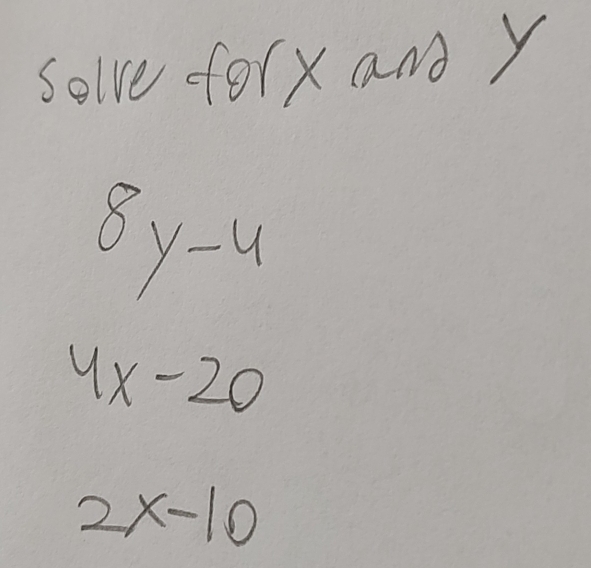 solve for x and y
8y-4
4x-20
2x-10